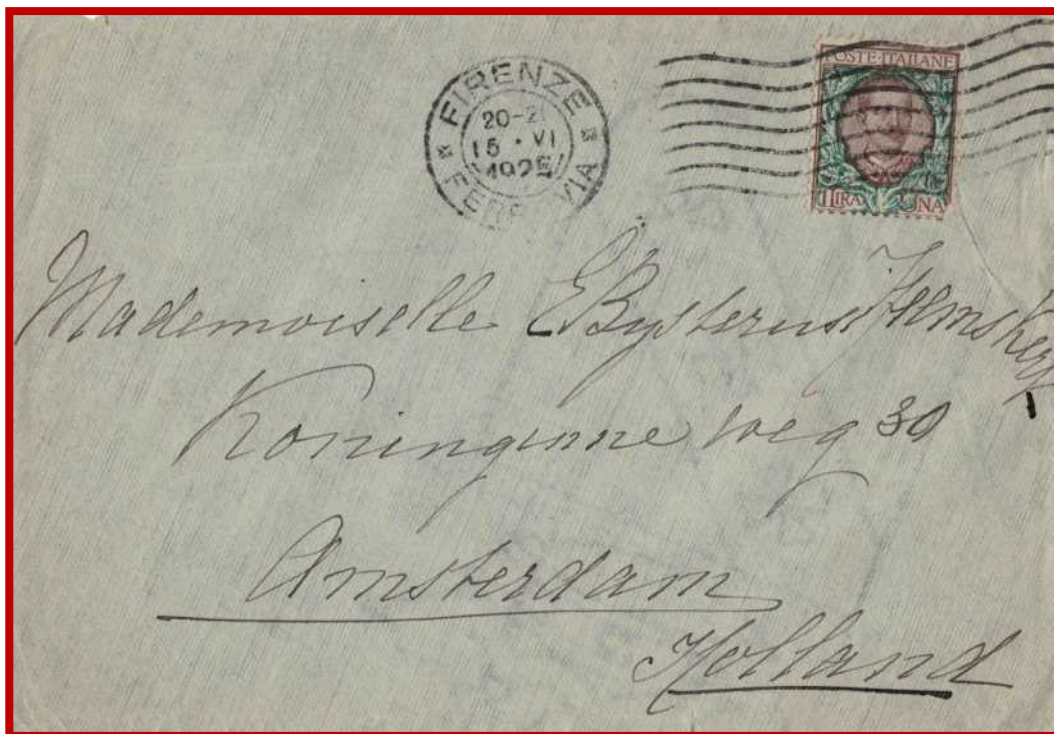 FIRENZE
20-21
15 · VI
1925
FERROVIA
POSTE·ITALIANE
1 LIRA UNA
Mademoiselle E Bysterus Heemskerk
Koninginne weg 30
Amsterdam
Holland